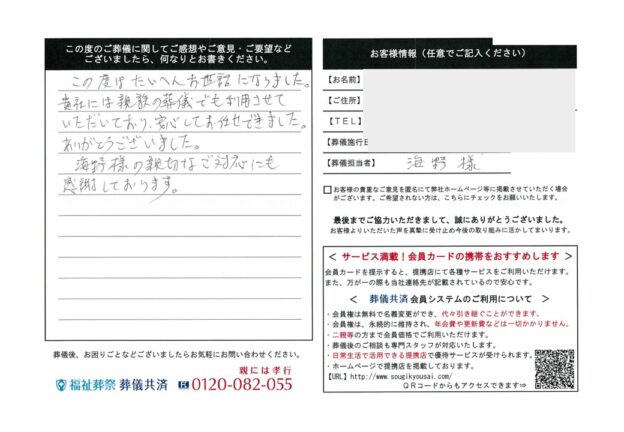 この度のご葬儀に関してご感想やご意見・ご要望など
ございましたら、何なりとお書きください。
この度はたいへんお世話になりました。
貴社には親族の葬儀でも利用させて
いただいており、安心してお任せできました。
ありがとうございました。
海野様の親切なご対応にも
感謝しております。
葬儀後、お困りごとなどございましたらお気軽にお問い合わせください。
親には孝行
福祉葬祭 葬儀共済 0120-082-055
お客様情報（任意でご記入ください）
【お名前】
【ご住所】
【TEL】
【葬儀施行日
【葬儀担当者】 海野様
お客様の貴重なご意見を匿名にて弊社ホームページ等に掲載させていただく場合
がございます。ご希望されない方は、こちらにチェックをお願いいたします。
最後までご協力いただきまして、誠にありがとうございました。
お客様よりいただいた声を真摯に受け止め今後の取り組みに活かしてまいります。
＜ サービス満載！会員カードの携帯をおすすめします ＞
会員カードを提示すると、提携店にて各種サービスをご利用いただけます。
また、万が一の際も当社連絡先が記載されているので安心です。
＜ 葬儀共済 会員システムのご利用について ＞
・会員権は無料で名義変更ができ、代々引き継ぐことができます。
・会員権は、永続的に維持され、年会費や更新費などは一切かかりません。
・二親等の方まで会員価格でご利用いただけます。
・葬儀後のご相談も専門スタッフが対応いたします。
・日常生活で活用できる提携店で優待サービスが受けられます。
・ホームページで提携店を掲載しております。
【URL】http://www.sougikyousai.com/
QRコードからもアクセスできます⇒